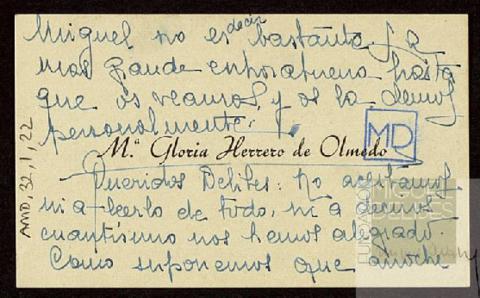 Miguel no es decir bastante. La
mas grande enhorabuena hasta
que os veamos y os la demos
personalmente.
MD
Mª Gloria Herrero de Olmedo
Queridos Delibes: No acertamos
ni a leerlo de todo, ni a deciros
cuantísimo nos hemos alegrado.
Como suponemos que anoche
AMD, 32, 1, 22